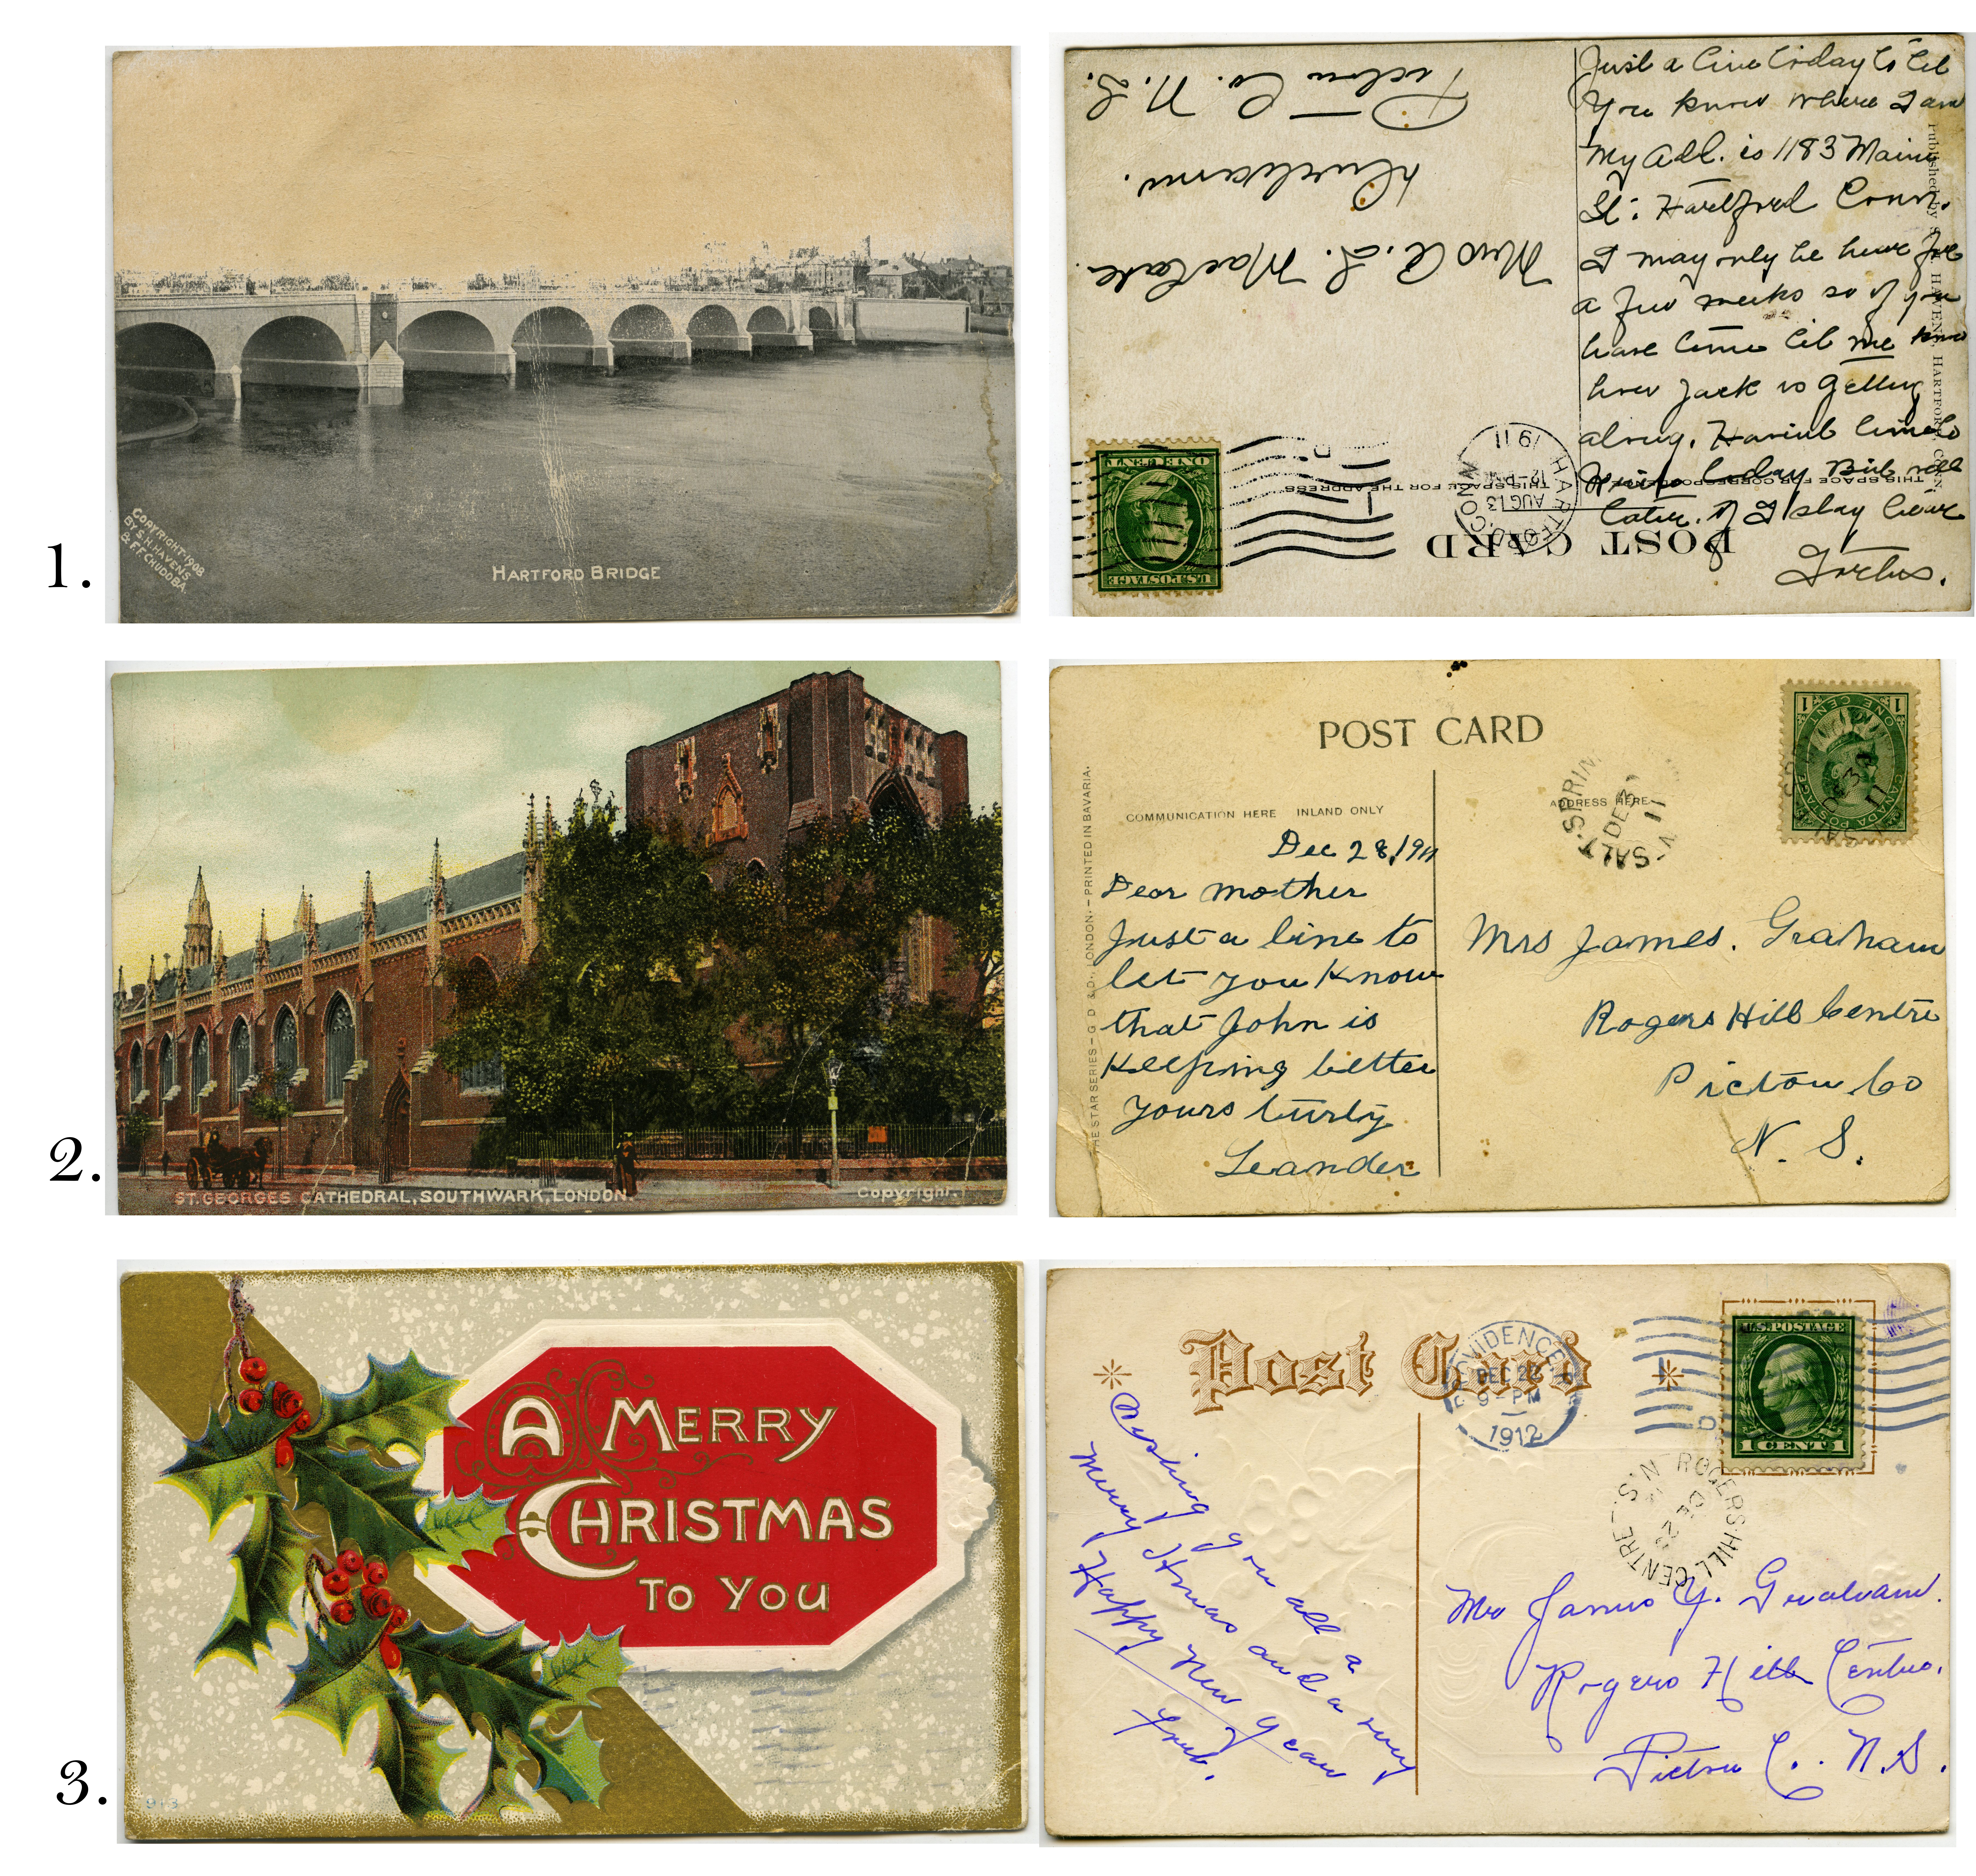 1.
COPYRIGHT-1908
BY S.H. HAVENS
& F.F. CHUDOBA.
HARTFORD BRIDGE
Just a line today to let
You know where I am
My Add. is 1183 Main
St. Hartford Conn.
I may only be here for
a few weeks so if you
have time let me know
how Jack is getting
along. Havint time to
Write today But will
later. if I stay here
Published by HAVENS, HARTFORD, CONN.
Mrs A. L.
Durham.
Pictou Co. N. S.
POST CARD
THIS SPACE FOR CORRESPONDENCE
THIS SPACE FOR THE ADDRESS
HARTFORD CONN.
AUG 13
12-PM
1911
U.S. POSTAGE
ONE CENT
2.
ST. GEORGES CATHEDRAL, SOUTHWARK, LONDON.
Copyright.
POST CARD
COMMUNICATION HERE INLAND ONLY
ADDRESS HERE
THE STAR SERIES – G. D. & D., LONDON. – PRINTED IN BAVARIA.
Dec 28, 1911
Dear mother
Just a line to
let you know
that John is
Keeping better
yours turly
Leander
Mrs James. Graham
Rogers Hill Centre
Pictou Co
N. S.
SALT SPRIN
DE
11
CANADA POSTAGE
1 ONE CENT 1
3.
A MERRY
CHRISTMAS
TO YOU
913
Post Card
PROVIDENCE
DEC 22
9-PM
1912
U.S. POSTAGE
1 CENT 1
ROGERS HILL CENTRE N.S
DE 2
Wishing you all a
Merry Xmas and a very
Happy New Year
Mr James Y. Graham.
Rogers Hill Centre.
Pictou Co. N.S.